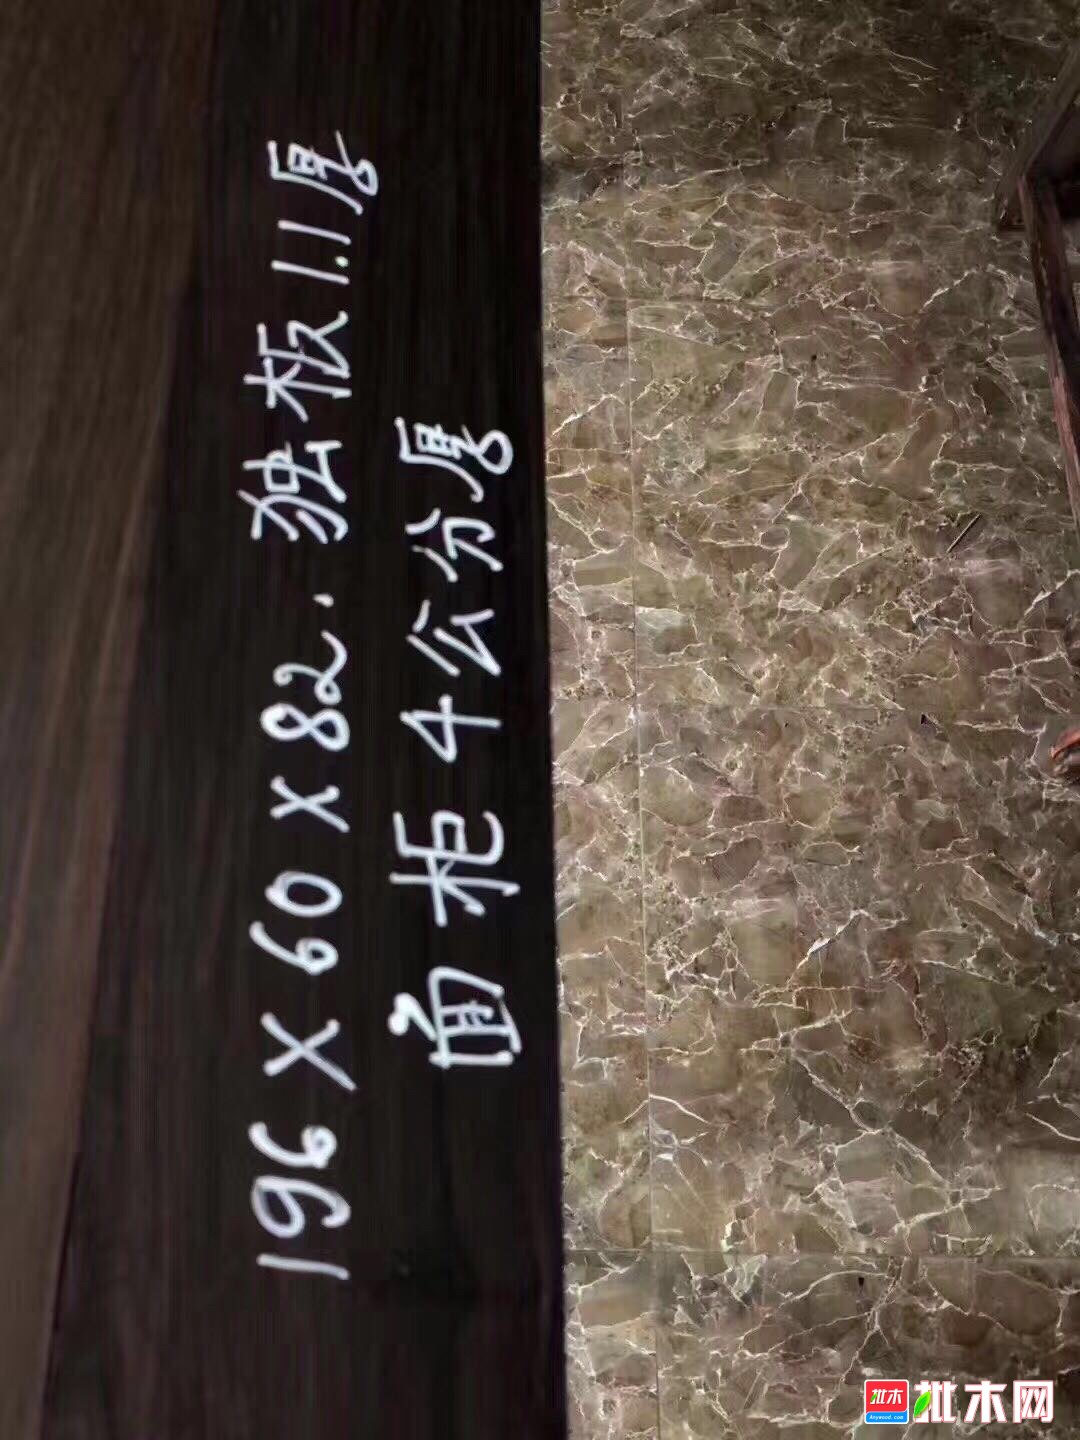 196×60×82.独板1.1厚
面柜4公分厚
批木
Anywood.com
批木网